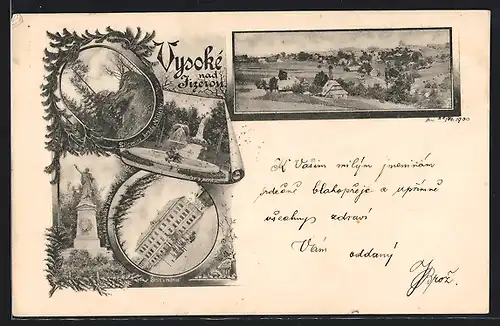 Vysoké
nad
Jizerou
1900
K Vašim milým jmeninám
srdečně blahopřeje a upřímně
všechny zdraví
Vám oddaný
Brož.